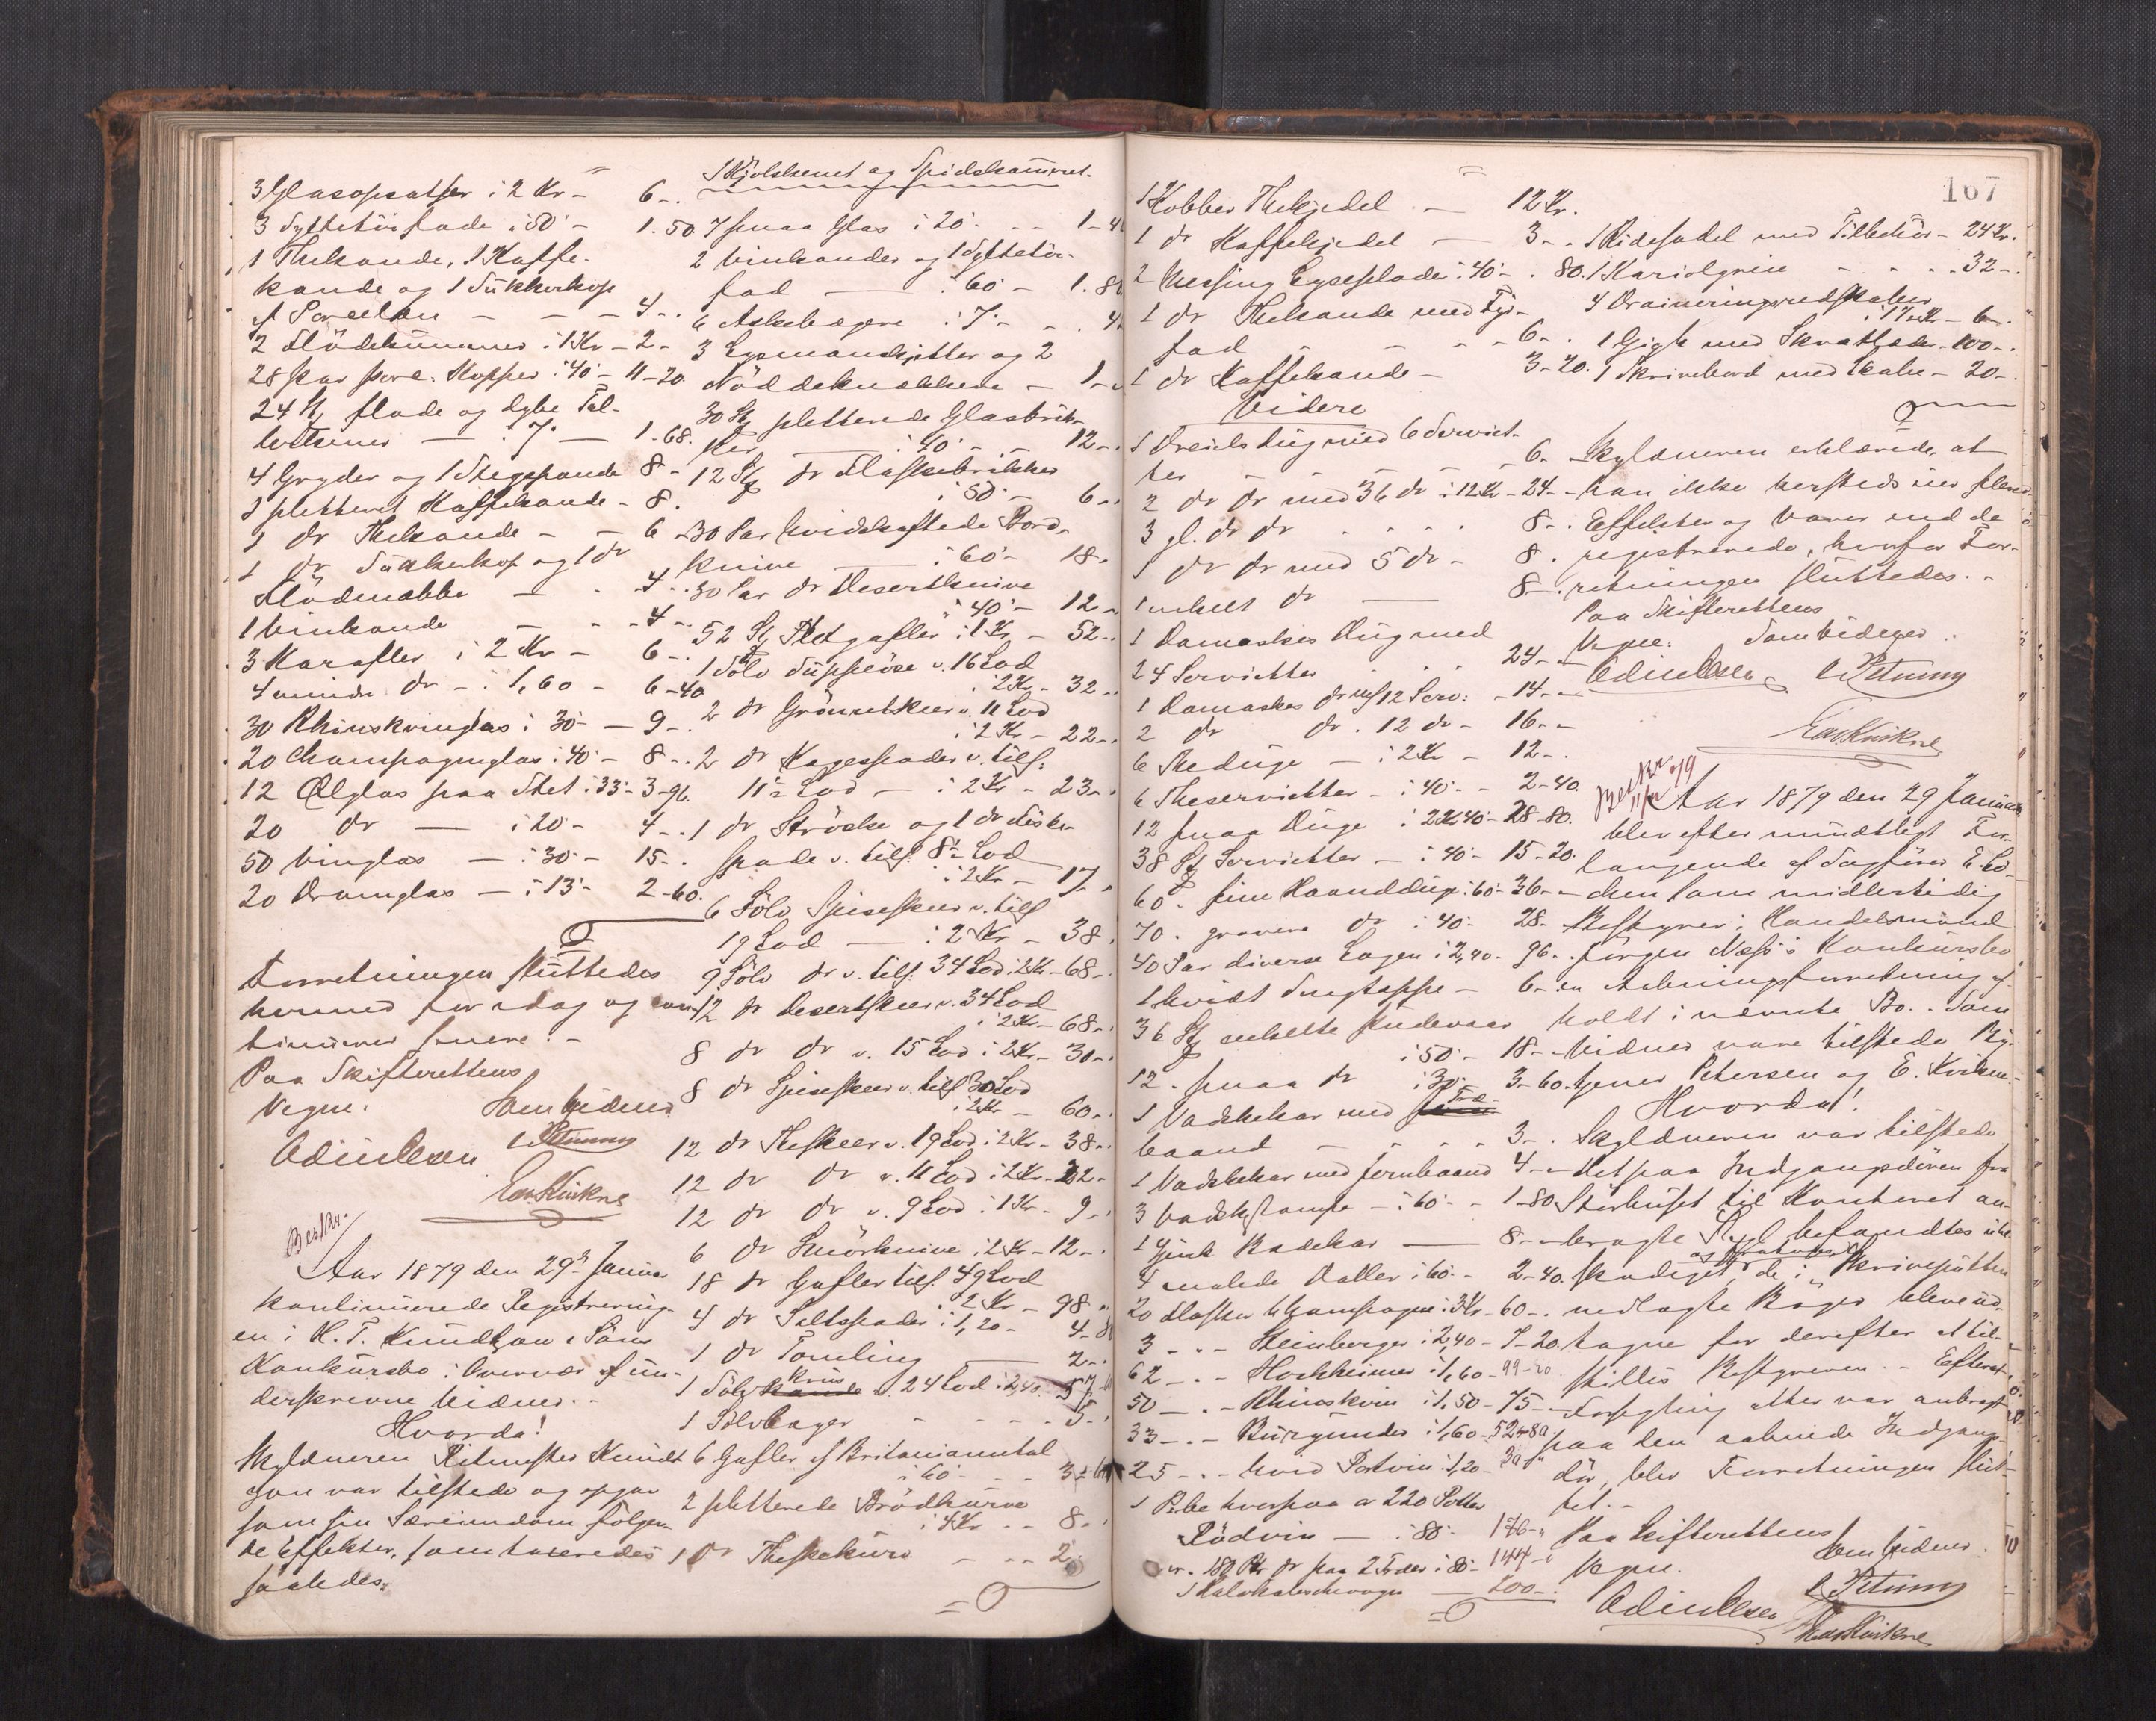 3 Glasopsatser i 2 Kr - 6 -.
3 Syltetöifade i 50 - 1.50
1 Thekande, 1 Kaffe-
kande og 1 Sukkerkop
af Porcelæn - - - 4 -.
2 Flödekummer i 1 Kr - 2 -
28 par porc: Kopper i 40 - 11-20.
24 St flade og dybe Tal-
lerkener — i 7 — 1-68.
4 Gryder og 1 Stegepande 8 -
1 pletteret Kaffekande - 8.
1 dr Thekande - - 6 -
1 dr Sukkerkop og 1 dr
Flödenæbbe - 4 -.
1 Vinkande - - - 4 -.
3 Karafler i 2 Kr - 6 -.
4 mindre dr - i 1,60 - 6-40
30 Rhinskvinglas i 30 - 9 -.
20 Champagneglas i 40 - 8 -.
12 Ølglas paa Stet i 33 - 3-96.
20 dr — i 20 - 4 -.
50 Vinglas — i 30 - 15 -.
20 Dramglas — i 13 - 2-60.
Forretningen sluttedes
hermed for idag og con-
tinueres senere. -
Paa Skifterettens
Vegne. Som Vidner
Odin Olsen E Petersen
Edv Kvikne
Beskr.
Aar 1879 den 29de Januar
kontinuerede Registrering-
en i H. T. Knudtzon & Söns
Konkursbo i Overvær af un-
derskrevne Vidner. -
Hvorda!
Skyldneren Ritmester Knudt-
zon var tilstede og opgav
som sin Særeiendom fölgen-
de Effekter, som taxeredes
saaledes:
I Kjölskenet og Spidskammret.
7 smaa Glas i 20 - - 1-40
2 Vinkander og 1 Syltetöi-
fad — i 60 - 1.80
6 Askebægere i 7 - - . 42
3 Lysmanchetter og 2
Nöddeknækkere - 1 -
30 St pletterede Glasbrik-
ker — i 40 - - 12 -.
12 St dr Flaskebrikker
i 50 - 6 -.
30 Par hvidskaftede Bord-
knive — i 60 - 18 -
30 Par dr Desertknive
i 40 - 12 -.
52 St Pletgafler i 1 Kr - 52 -.
1 Sölv Suppeöse v. 16 Lod
i 2 Kr - 32 -.
2 dr Grönsetskeer v. 11 Lod
i 2 Kr - 22 -.
2 dr Kagespader v. tils:
11½ Lod - i 2 Kr - 23 -.
1 dr Ströske og 1 dr Fiske-
spade v. tils. 8½ Lod
i 2 Kr - 17 -.
6 Sölv Spiseskeer v. tils
19 Lod — i 2 Kr - 38.
9 Sölv dr v. tils. 34 Lod i 2 Kr - 68 -.
12 dr Desertskeer v. 34 Lod
i 2 Kr - 68 -.
8 dr dr v. 15 Lod i 2 Kr - 30 -.
8 dr Spiseskeer v. tils 30 Lod
i 2 Kr - 60 -.
12 dr Theskeer v. 19 Lod i 2 Kr - 38 -.
12 dr dr v. 11 Lod i 2 Kr - 22 -
12 dr dr v. 9 Lod i 1 Kr - 9 -.
6 dr Smörknive i 2 Kr - 12 -.
18 dr Gafler tils. 49 Lod
i 2 Kr - 98 -
4 dr Saltspader i 1,20 - 4-80
1 dr Tomling — 2 -.
1 Sölvkrus v. 24 Lod i 2,40 - 57-60
1 Sölvbæger - - - - 5 -.
6 Gafler af Britaniametal
i 60 - - 3-60
2 pletterede Brödkurve
i 4 Kr - - 8 -.
1 dr Theskekurv - - - 2 -
167
1 Kobber Thekjedel — 12 Kr.
1 dr Kaffekjedel — 3 -.
2 Messing Lyseplade i 40 - . 80.
1 dr Thekande med Fyr-
fad - - - - 6 -.
1 dr Kaffekande - 3-20.
Videre
1 Dreilsdug med 6 Serviet-
ter - - - - 6 -
2 dr dr med 36 dr i 12 Kr - 24 -
3 gl. dr dr - - - 8 -.
1 dr dr med 5 dr - 8.
1 enkelt dr — 8 -.
1 Damaskes Dug med
24 Servietter - - - 24 -
1 Damaskes dr m/ 12 Serv: - 14 -
2 dr dr. 12 dr - 16 -
6 Theduge — i 2 Kr - 12 -.
6 Theservietter - i 40 - - 2-40.
12 smaa Duge i 2 Kr 40 - 28-80.
38 St Servietter - i 40 - 15-20.
60 - fine Haandduge i 60 - 36 -
70 - grovere dr i 40 - 28 -
40 Par diverse Lagen i 2,40 - 96 -.
1 hvidt Sengtæppe - 6 -.
36 St enkelte Pudevaar
i 50 - 18 -
12 - smaa dr i 30 - 3-60.
1 Vadskekar med Træ-
baand - - - - 3 -.
1 Vadskekar med Jernbaand 4 -
3 Vadskestampe - i 60 - - 1-80
1 Zink Badekar — 8 -
4 malede Baller i 60 - - 2-40.
20 Flasker Champagne i 3 Kr - 60 -.
3 - - - Steinberger i 2,40 - 7-20.
62 - . - Hochheimer i 1,60 - 99-20
50 — . - Rhinskvin i 1,50 - 75 -
33 - . - Burgunder i 1,60 - 52-80
25 - . - hvid Portvin i 1,20 - 30 "
1 Pibe hvorpaa ca 220 Potter
Rödvin — i 80 - 176 - "
ca. 180 Ptr dr paa 2 Fæder i 80 - 144 - "
1 Halvkaleschevogn — 200 -.
1 Ridesadel med Tilbehör - 24 Kr.
1 Kariolgreie - - - - 32 -.
4 Draineringsredskaber
i 1½ Kr - 6 -.
1 Gigk med Skvætlæder - 100 -.
1 Skrivebord med Skabe - 20 -.
Skyldneren erklærede, at
han ikke hersteds eier flere
Effekter og Varer end de
registrerede, hvorfor For-
retningen sluttedes. -
Paa Skifterettens
Vegne: Som Vidner.
Odin Olsen E Petersen
Edv Kvikne
Beskr 11/2 79
Aar 1879 den 29 Januar
blev efter mundtligt For-
langende af Sagförer E. Lo-
chen som midlertidig
Bestyrer i Handelsmand
Jörgen Næss's Konkursbo
en Aabningsforretning af-
holdt i nævnte Bo. - Som
Vidner vare tilstede By-
tjener Petersen og E. Kvikne. -
Hvorda!
Skyldneren var tilstede
Det paa Indgangsdören fra
Storhuset til Kontoret an-
bragte Segl befandtes ube-
skadiget, og Protokoller de i Skrivepulten
nedlagte Böger bleve ud-
tagne for derefter at til-
stilles Bestyreren. - Efterat
Forsegling atter var anbragt
paa den aabnede Indgangs-
dör, blev Forretningen slut-
tet. -
Paa Skifterettens
Vegne. Som Vidner.
Odin Olsen E Petersen
Edv Kvikne